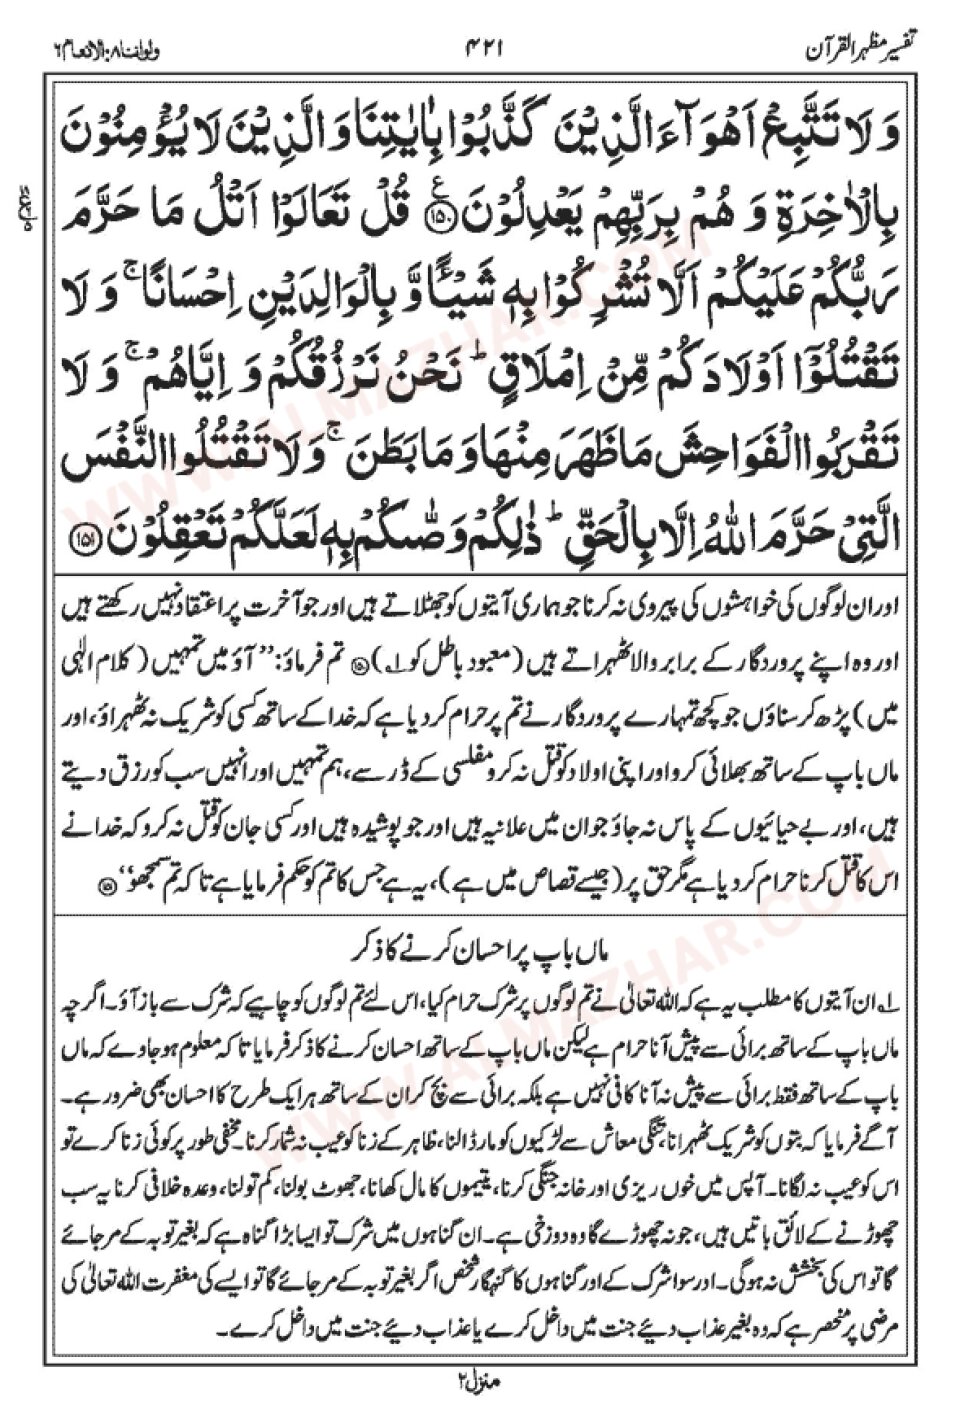 تفسیر مظہر القرآن
۴۲۱
ولو اننا ۸: الانعام ۶
وَلَا تَتَّبِعْ اَهْوَآءَ الَّذِیْنَ كَذَّبُوْا بِاٰیٰتِنَا وَالَّذِیْنَ لَا یُؤْمِنُوْنَ
بِالْاٰخِرَةِ وَ هُمْ بِرَبِّهِمْ یَعْدِلُوْنَ ﴿۱۵۰﴾ ع قُلْ تَعَالَوْا اَتْلُ مَا حَرَّمَ
رَبُّكُمْ عَلَیْكُمْ اَلَّا تُشْرِكُوْا بِهٖ شَیْـًٔا وَّ بِالْوَالِدَیْنِ اِحْسَانًا ۚ وَ لَا
تَقْتُلُوْۤا اَوْلَادَكُمْ مِّنْ اِمْلَاقٍ ؕ نَحْنُ نَرْزُقُكُمْ وَ اِیَّاهُمْ ۚ وَ لَا
تَقْرَبُوا الْفَوَاحِشَ مَا ظَهَرَ مِنْهَا وَ مَا بَطَنَ ۚ وَ لَا تَقْتُلُوا النَّفْسَ
الَّتِیْ حَرَّمَ اللّٰهُ اِلَّا بِالْحَقِّ ؕ ذٰلِكُمْ وَصّٰىكُمْ بِهٖ لَعَلَّكُمْ تَعْقِلُوْنَ ﴿۱۵۱﴾
اور ان لوگوں کی خواہشوں کی پیروی نہ کرنا جو ہماری آیتوں کو جھٹلاتے ہیں اور جو آخرت پر اعتقاد نہیں رکھتے ہیں
اور وہ اپنے پروردگار کے برابر والا ٹھہراتے ہیں (معبود باطل کو ۱؎) ﴿۱۵۰﴾ تم فرماؤ: ’’آؤ میں تمہیں (کلام الٰہی
میں) پڑھ کر سناؤں جو کچھ تمہارے پروردگار نے تم پر حرام کر دیا ہے کہ خدا کے ساتھ کسی کو شریک نہ ٹھہراؤ، اور
ماں باپ کے ساتھ بھلائی کرو اور اپنی اولاد کو قتل نہ کرو مفلسی کے ڈر سے، ہم تمہیں اور انہیں سب کو رزق دیتے
ہیں، اور بے حیائیوں کے پاس نہ جاؤ جو ان میں علانیہ ہیں اور جو پوشیدہ ہیں اور کسی جان کو قتل نہ کرو کہ خدا نے
اس کا قتل کرنا حرام کر دیا ہے مگر حق پر (جیسے قصاص میں ہے)، یہ ہے جس کا تم کو حکم فرمایا ہے تاکہ تم سمجھو‘‘ ﴿۱۵۱﴾
ماں باپ پر احسان کرنے کا ذکر
۱؎ ان آیتوں کا مطلب یہ ہے کہ اللہ تعالیٰ نے تم لوگوں پر شرک حرام کیا، اس لئے تم لوگوں کو چاہیے کہ شرک سے باز آؤ۔ اگرچہ
ماں باپ کے ساتھ برائی سے پیش آنا حرام ہے لیکن ماں باپ کے ساتھ احسان کرنے کا ذکر فرمایا تاکہ معلوم ہو جاوے کہ ماں
باپ کے ساتھ فقط برائی سے پیش نہ آنا کافی نہیں ہے بلکہ برائی سے بچ کر ان کے ساتھ ہر ایک طرح کا احسان بھی ضرور ہے۔
آگے فرمایا کہ بتوں کو شریک ٹھہرانا، تنگی معاش سے لڑکیوں کو مار ڈالنا، ظاہر کے زنا کو عیب نہ شمار کرنا۔ مخفی طور پر کوئی زنا کرے تو
اس کو عیب نہ لگانا۔ آپس میں خوں ریزی اور خانہ جنگی کرنا، یتیموں کا مال کھانا، جھوٹ بولنا، کم تولنا، وعدہ خلافی کرنا یہ سب
چھوڑنے کے لائق باتیں ہیں، جو نہ چھوڑے گا وہ دوزخی ہے۔ ان گناہوں میں شرک تو ایسا بڑا گناہ ہے کہ بغیر توبہ کے مر جائے
گا تو اس کی بخشش نہ ہوگی۔ اور سوا شرک کے اور گناہوں کا گنہگار شخص اگر بغیر توبہ کے مر جائے گا تو ایسے کی مغفرت اللہ تعالیٰ کی
مرضی پر منحصر ہے کہ وہ بغیر عذاب دیئے جنت میں داخل کرے یا عذاب دیئے جنت میں داخل کرے۔
منزل ۲
WWW.ALMAZHAR.COM
WWW.ALMAZHAR.COM